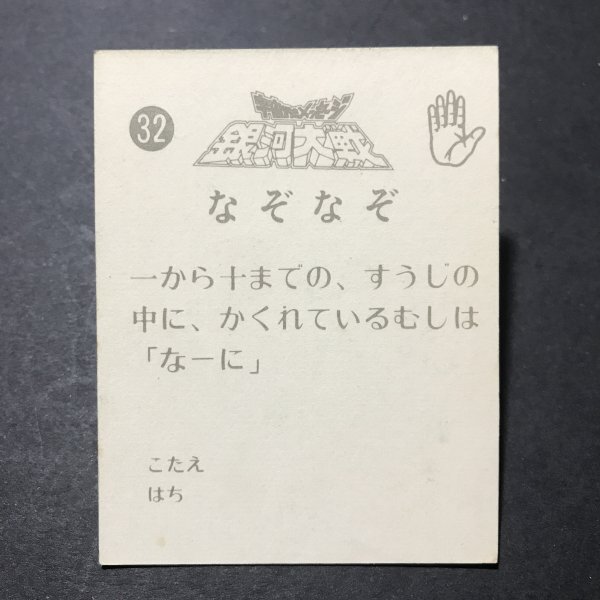 32
宇宙からのメッセージ
銀河大戦
なぞなぞ
一から十までの、すうじの
中に、かくれているむしは
「なーに」
こたえ
はち